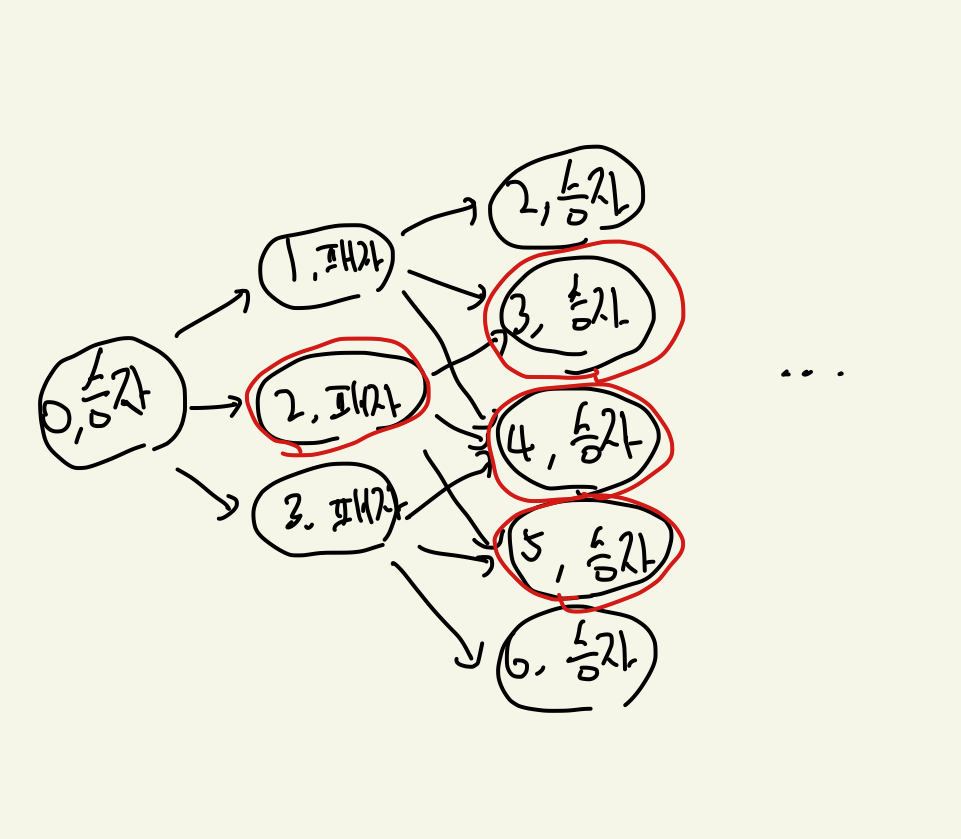 0, 승자
1, 패자
2, 패자
3. 패자
2, 승자
3, 승자
4, 승자
5, 승자
6, 승자
...